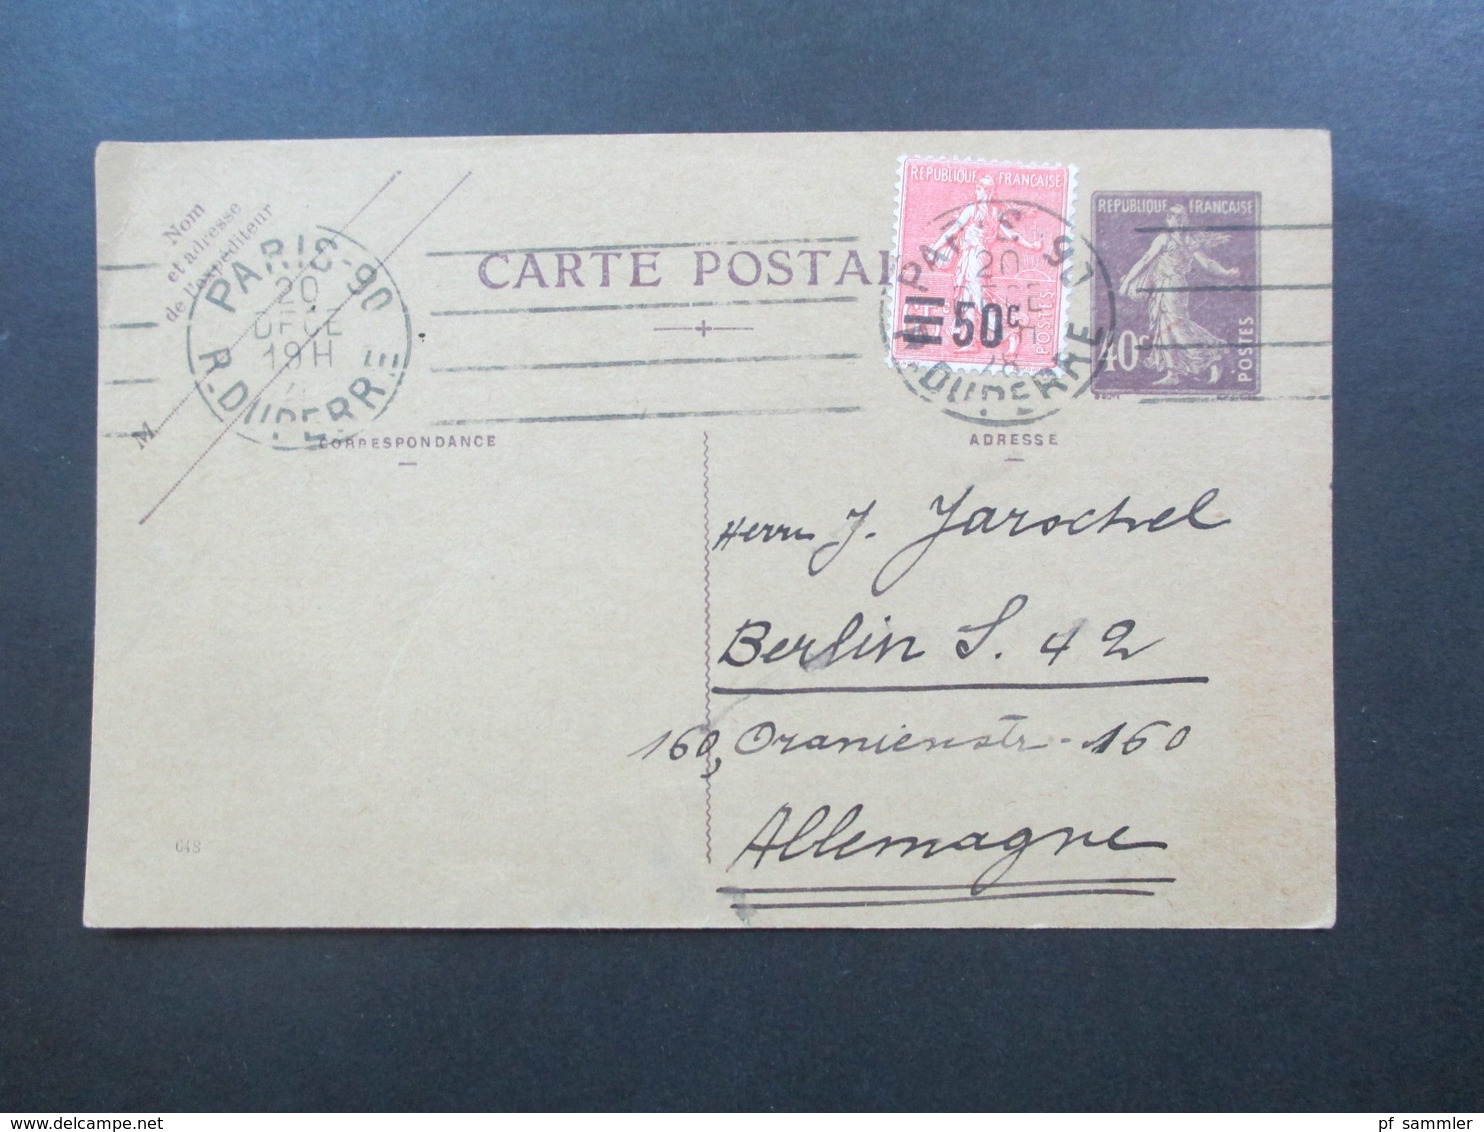 Nom
et adresse
de l'expéditeur
M.
PARIS-90
20
DECE
19H
R. DUPERRÉ
CARTE POSTAL
REPUBLIQUE FRANÇAISE
50c
POSTES
PARIS 90
20
R. DUPERRE
REPUBLIQUE FRANÇAISE
40c
POSTES
CORRESPONDANCE
ADRESSE
Herrn J. Jarochel
Berlin S. 42
160, Oranienstr. 160
Allemagne
048
www.delcampe.net
pf_sammler